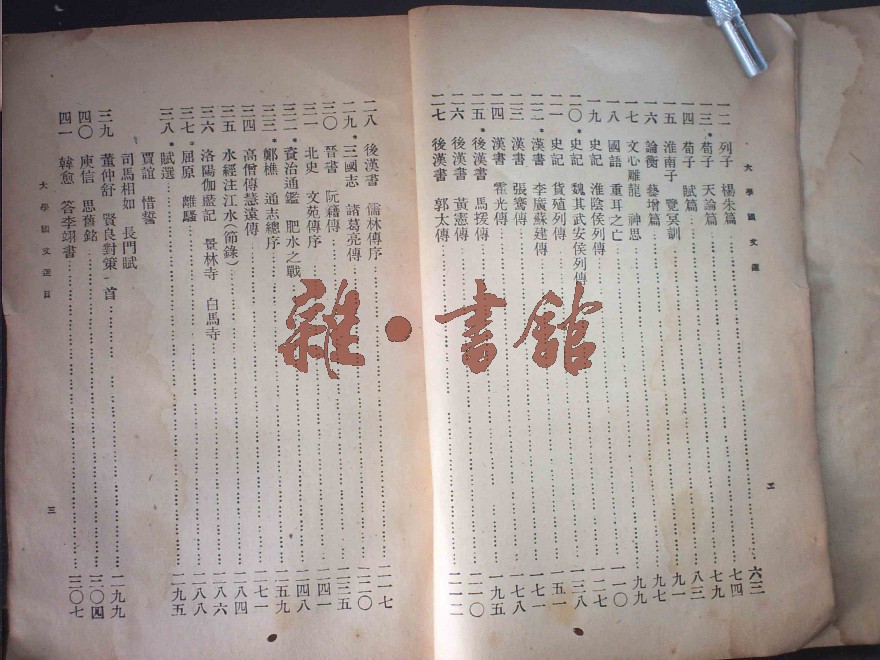 大學國文選
一二 列子 楊朱篇 ⋯⋯ 六三
一三 *荀子 天論篇 ⋯⋯ 七四
一四 荀子 賦篇 ⋯⋯ 七九
一五 淮南子 覽冥訓 ⋯⋯ 八三
一六 論衡 藝增篇 ⋯⋯ 九一
一七 文心雕龍 神思 ⋯⋯ 九七
一八 國語 重耳之亡 ⋯⋯ 九九
一九 史記 淮陰侯列傳 ⋯⋯ 一一〇
二〇 *史記 魏其武安侯列傳 ⋯⋯ 一二七
二一 史記 貨殖列傳 ⋯⋯ 一三八
二二 *漢書 李廣蘇建傳 ⋯⋯ 一五一
二三 漢書 張騫傳 ⋯⋯ 一七一
二四 漢書 霍光傳 ⋯⋯ 一七八
二五 *後漢書 馬援傳 ⋯⋯ 一九五
二六 後漢書 黃憲傳 ⋯⋯ 二一〇
二七 後漢書 郭太傳 ⋯⋯ 二一二
二八 後漢書 儒林傳序 ⋯⋯ 二一七
二九 *三國志 諸葛亮傳 ⋯⋯ 二二〇
三〇 晉書 阮籍傳 ⋯⋯ 二三五
三一 北史 文苑傳序 ⋯⋯ 二四一
三二 *資治通鑑 肥水之戰 ⋯⋯ 二四八
三三 *鄭樵 通志總序 ⋯⋯ 二五九
三四 高僧傳慧遠傳 ⋯⋯ 二七一
三五 水經注江水(節錄) ⋯⋯ 二八四
三六 洛陽伽藍記 景林寺 白馬寺 ⋯⋯ 二八六
三七 *屈原 離騷 ⋯⋯ 二八八
三八 *賦選 ⋯⋯ 二九五
賈誼 惜誓
司馬相如 長門賦
三九 董仲舒 賢良對策 首 ⋯⋯ 二九九
四〇 庾信 思舊銘 ⋯⋯ 三〇四
四一 韓愈 答李翊書 ⋯⋯ 三〇七
大學國文選目
三
雜·書館